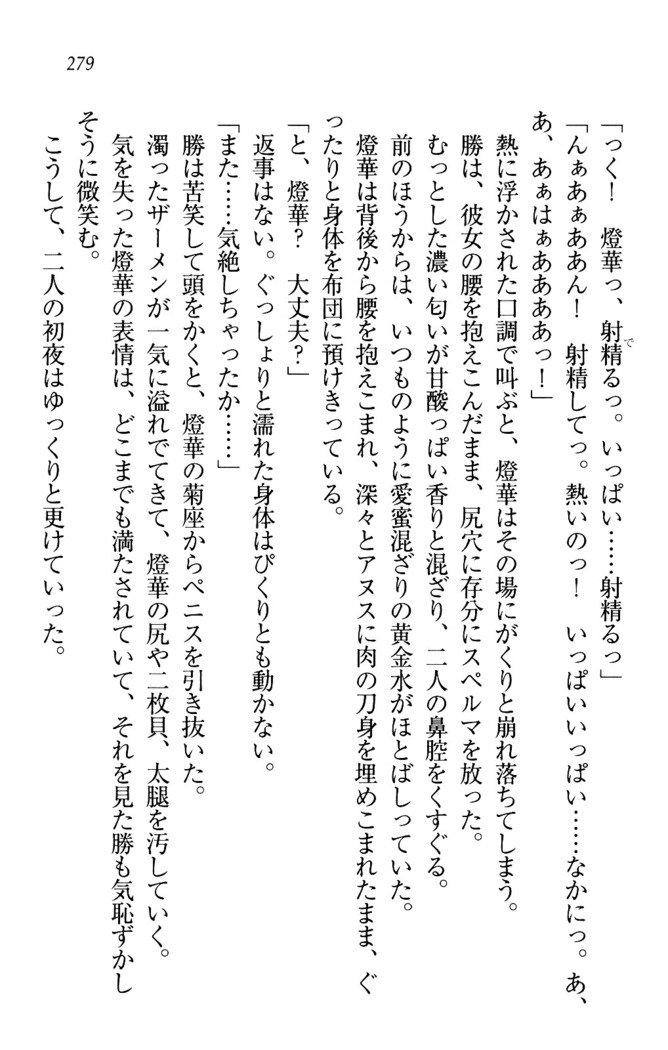 279
「っく！　燈華っ、射精るっ。いっぱい……射精るっ」
「んぁあぁああん！　射精してっ。熱いのっ！　いっぱいいっぱい……なかにっ。あ、
あ、あぁはぁああああっ！」
熱に浮かされた口調で叫ぶと、燈華はその場にがくりと崩れ落ちてしまう。
勝は、彼女の腰を抱えこんだまま、尻穴に存分にスペルマを放った。
むっとした濃い匂いが甘酸っぱい香りと混ざり、二人の鼻腔をくすぐる。
前のほうからは、いつものように愛蜜混ざりの黄金水がほとばしっていた。
燈華は背後から腰を抱えこまれ、深々とアヌスに肉の刀身を埋めこまれたまま、ぐ
ったりと身体を布団に預けきっている。
「と、燈華？　大丈夫？」
返事はない。ぐっしょりと濡れた身体はぴくりとも動かない。
「また……気絶しちゃったか……」
勝は苦笑して頭をかくと、燈華の菊座からペニスを引き抜いた。
濁ったザーメンが一気に溢れでてきて、燈華の尻や二枚貝、太腿を汚していく。
気を失った燈華の表情は、どこまでも満たされていて、それを見た勝も気恥ずかし
そうに微笑む。
こうして、二人の初夜はゆっくりと更けていった。